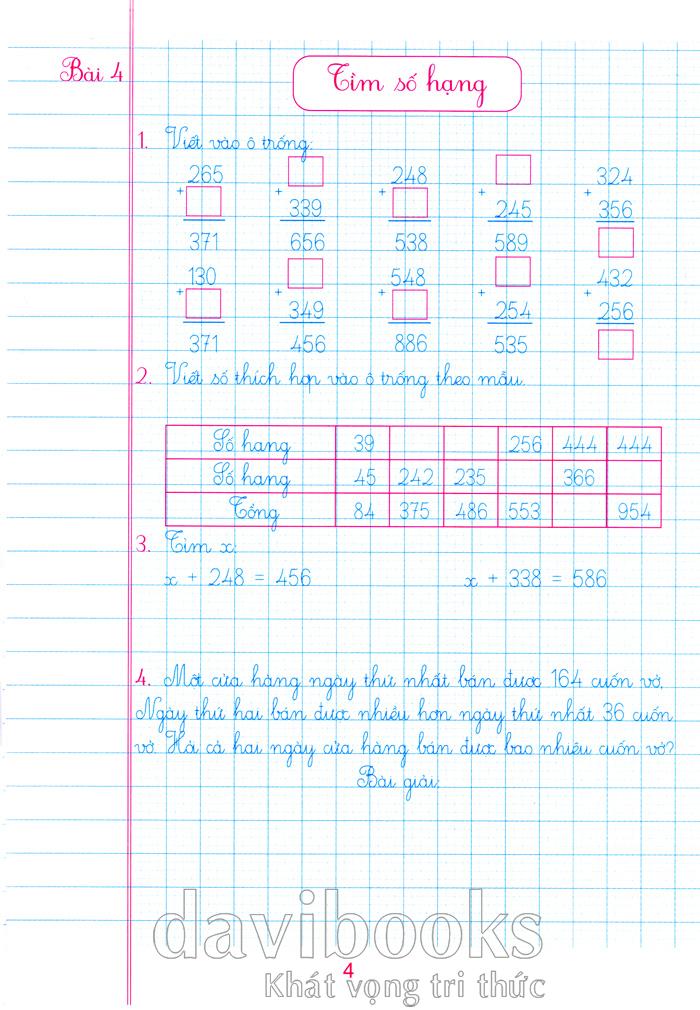 Bài 4
Tìm số hạng
1. Viết vào ô trống:
265 248 324
+ + + + +
339 245 356
371 656 538 589
130 548 432
+ + + + +
349 254 256
371 456 886 535
2. Viết số thích hợp vào ô trống theo mẫu.
Số hạng 39 256 444 444
Số hạng 45 242 235 366
Tổng 84 375 486 553 954
3. Tìm x:
x + 248 = 456 x + 338 = 586
4. Một cửa hàng ngày thứ nhất bán được 164 cuốn vở.
Ngày thứ hai bán được nhiều hơn ngày thứ nhất 36 cuốn
vở. Hỏi cả hai ngày cửa hàng bán được bao nhiêu cuốn vở?
Bài giải:
davibooks
4
Khát vọng tri thức